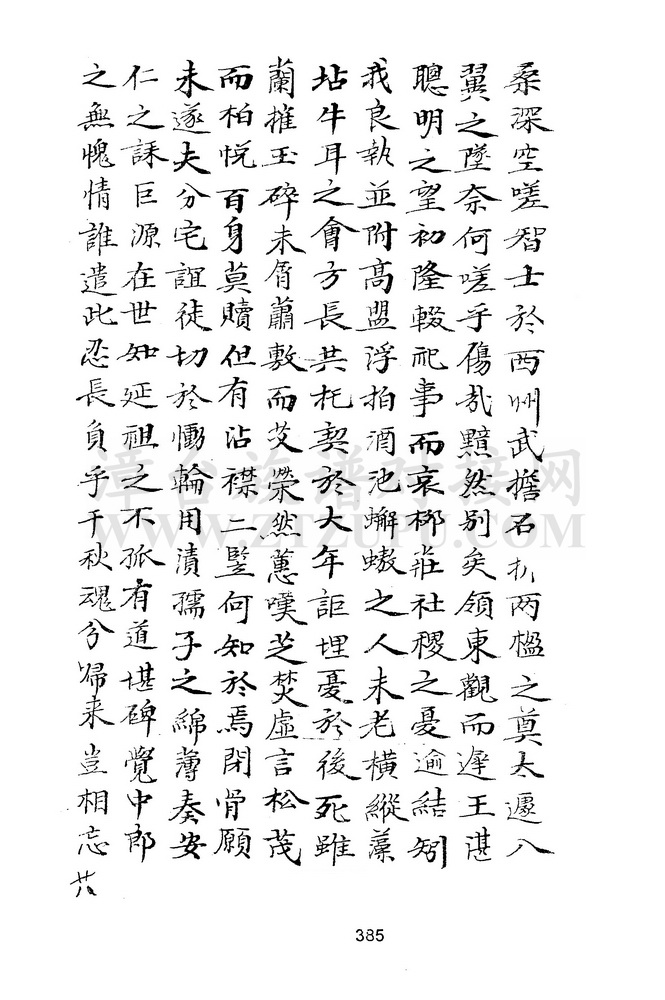 桑深空嗟智士於西州武擔石扒两楹之奠太遽八
翼之墜奈何嗟乎傷哉黯然别矣領東觀而遅王湛
聰明之望初隆輟祀事而哀栁莊社稷之憂逾結矧
我良執並附高盟浮拍酒池蠏螯之人未老橫縱藻
坫牛耳之會方長共托契於大年詎埋憂於後死雖
蘭摧玉碎未屑蕭敷而艾榮然蕙嘆芝焚虛言松茂
而柏悅百身莫贖但有沾襟二豎何知於焉閉骨願
未遂夫分宅誼徒切於慟輪用漬孺子之綿薄奏安
仁之誄巨源在世知延祖之不孤有道堪碑覺中郎
之無愧情誰遣此忍長負乎千秋魂兮歸来豈相忘
385
章台族谱对接网
WWW.ZTZUPU.COM